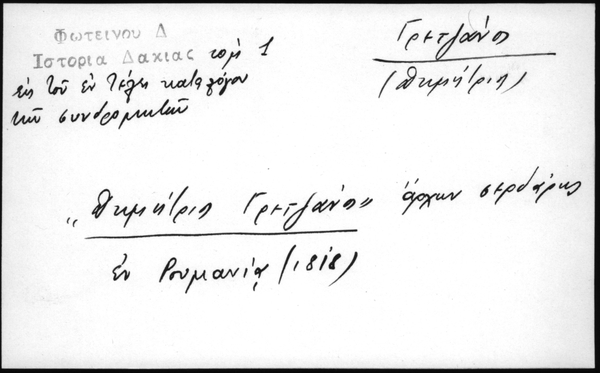 Φωτεινου Δ
Ιστορια Δακιας τομ 1
εις τον εν τέλει καταλόγον
των συνδρομητών
Γρετζάνος
(Δημήτρις)
„Δημήτρις Γρετζάνος” άρχων σερδάρης
εν Ρουμανία (1818)